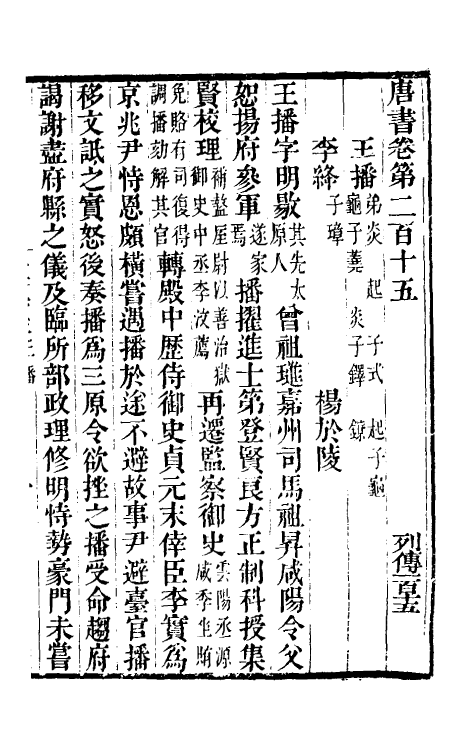 唐書卷第二百十五 列傳一百五
王播 弟炎 起 子式 起子龜
龜子蕘 炎子鐸 鐐 楊於陵
李絳 子璋
王播字明敭 其先太原人 曾祖璡嘉州司馬祖昇咸陽令父
恕揚府參軍 遂家焉 播擢進士第登賢良方正制科授集
賢校理 補盩厔尉以善治獄御史中丞李汶薦 再遷監察御史 雲陽丞源咸季坐賄
免賂有司復得調播劾解其官 轉殿中歷侍御史貞元末倖臣李實爲
京兆尹恃恩頗橫嘗遇播於途不避故事尹避臺官播
移文詆之實怒後奏播爲三原令欲挫之播受命趨府
謁謝盡府縣之儀及臨所部政理修明恃勢豪門未嘗